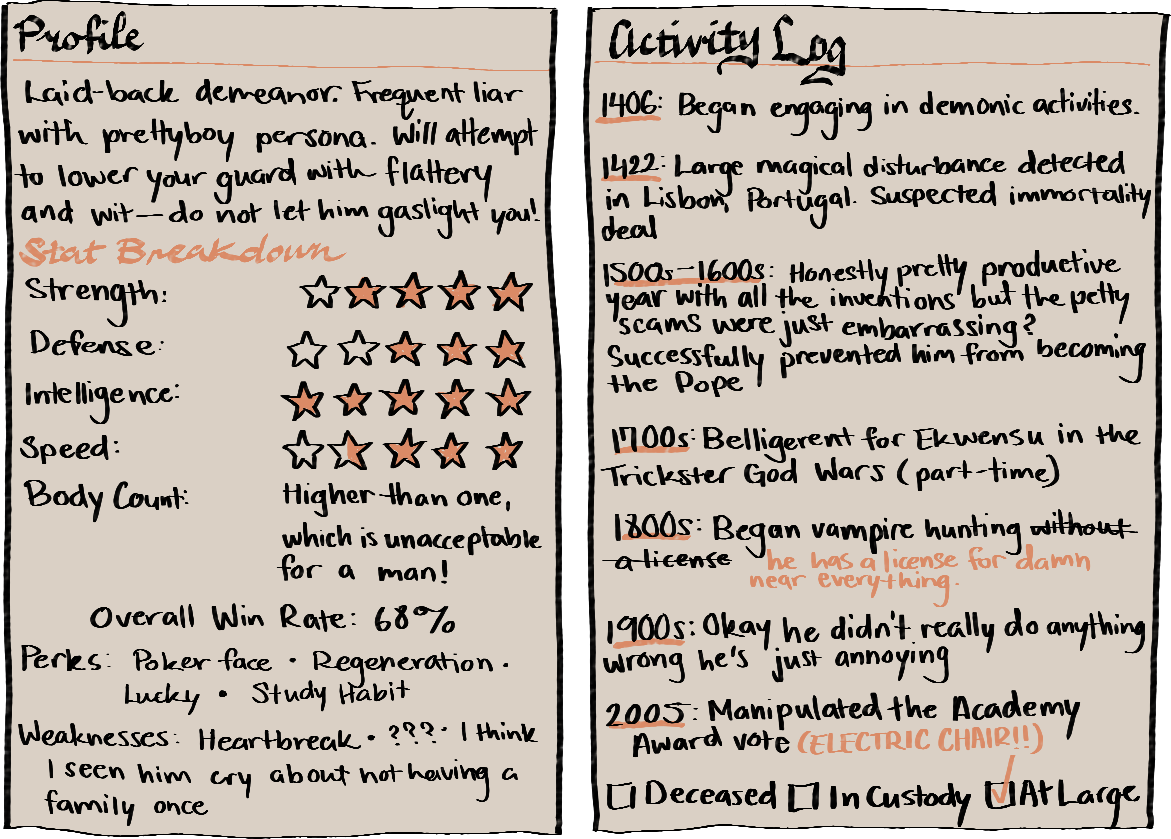 Profile
Laid-back demeanor. Frequent liar
with prettyboy persona. Will attempt
to lower your guard with flattery
and wit—do not let him gaslight you!
Stat Breakdown
Strength:
Defense:
Intelligence:
Speed:
Body Count: Higher than one,
which is unacceptable
for a man!
Overall Win Rate: 68%
Perks: Poker face • Regeneration •
Lucky • Study Habit
Weaknesses: Heartbreak • ??? • I think
I seen him cry about not having a
family once
Activity Log
1406: Began engaging in demonic activities.
1422: Large magical disturbance detected
in Lisbon, Portugal. Suspected immortality
deal
1500s-1600s: Honestly pretty productive
year with all the inventions but the petty
scams were just embarrassing?
Successfully prevented him from becoming
the Pope
1700s: Belligerent for Ekwensu in the
Trickster God Wars (part-time)
1800s: Began vampire hunting without
a license he has a license for damn
near everything.
1900s: Okay he didn't really do anything
wrong he's just annoying
2005: Manipulated the Academy
Award vote (ELECTRIC CHAIR!!)
Deceased In Custody At Large